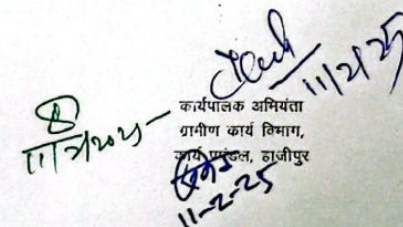 11/2/25
11/2/2025
कार्यपालक अभियंता
ग्रामीण कार्य विभाग,
कार्य प्रमंडल, हाजीपुर
11-2-25